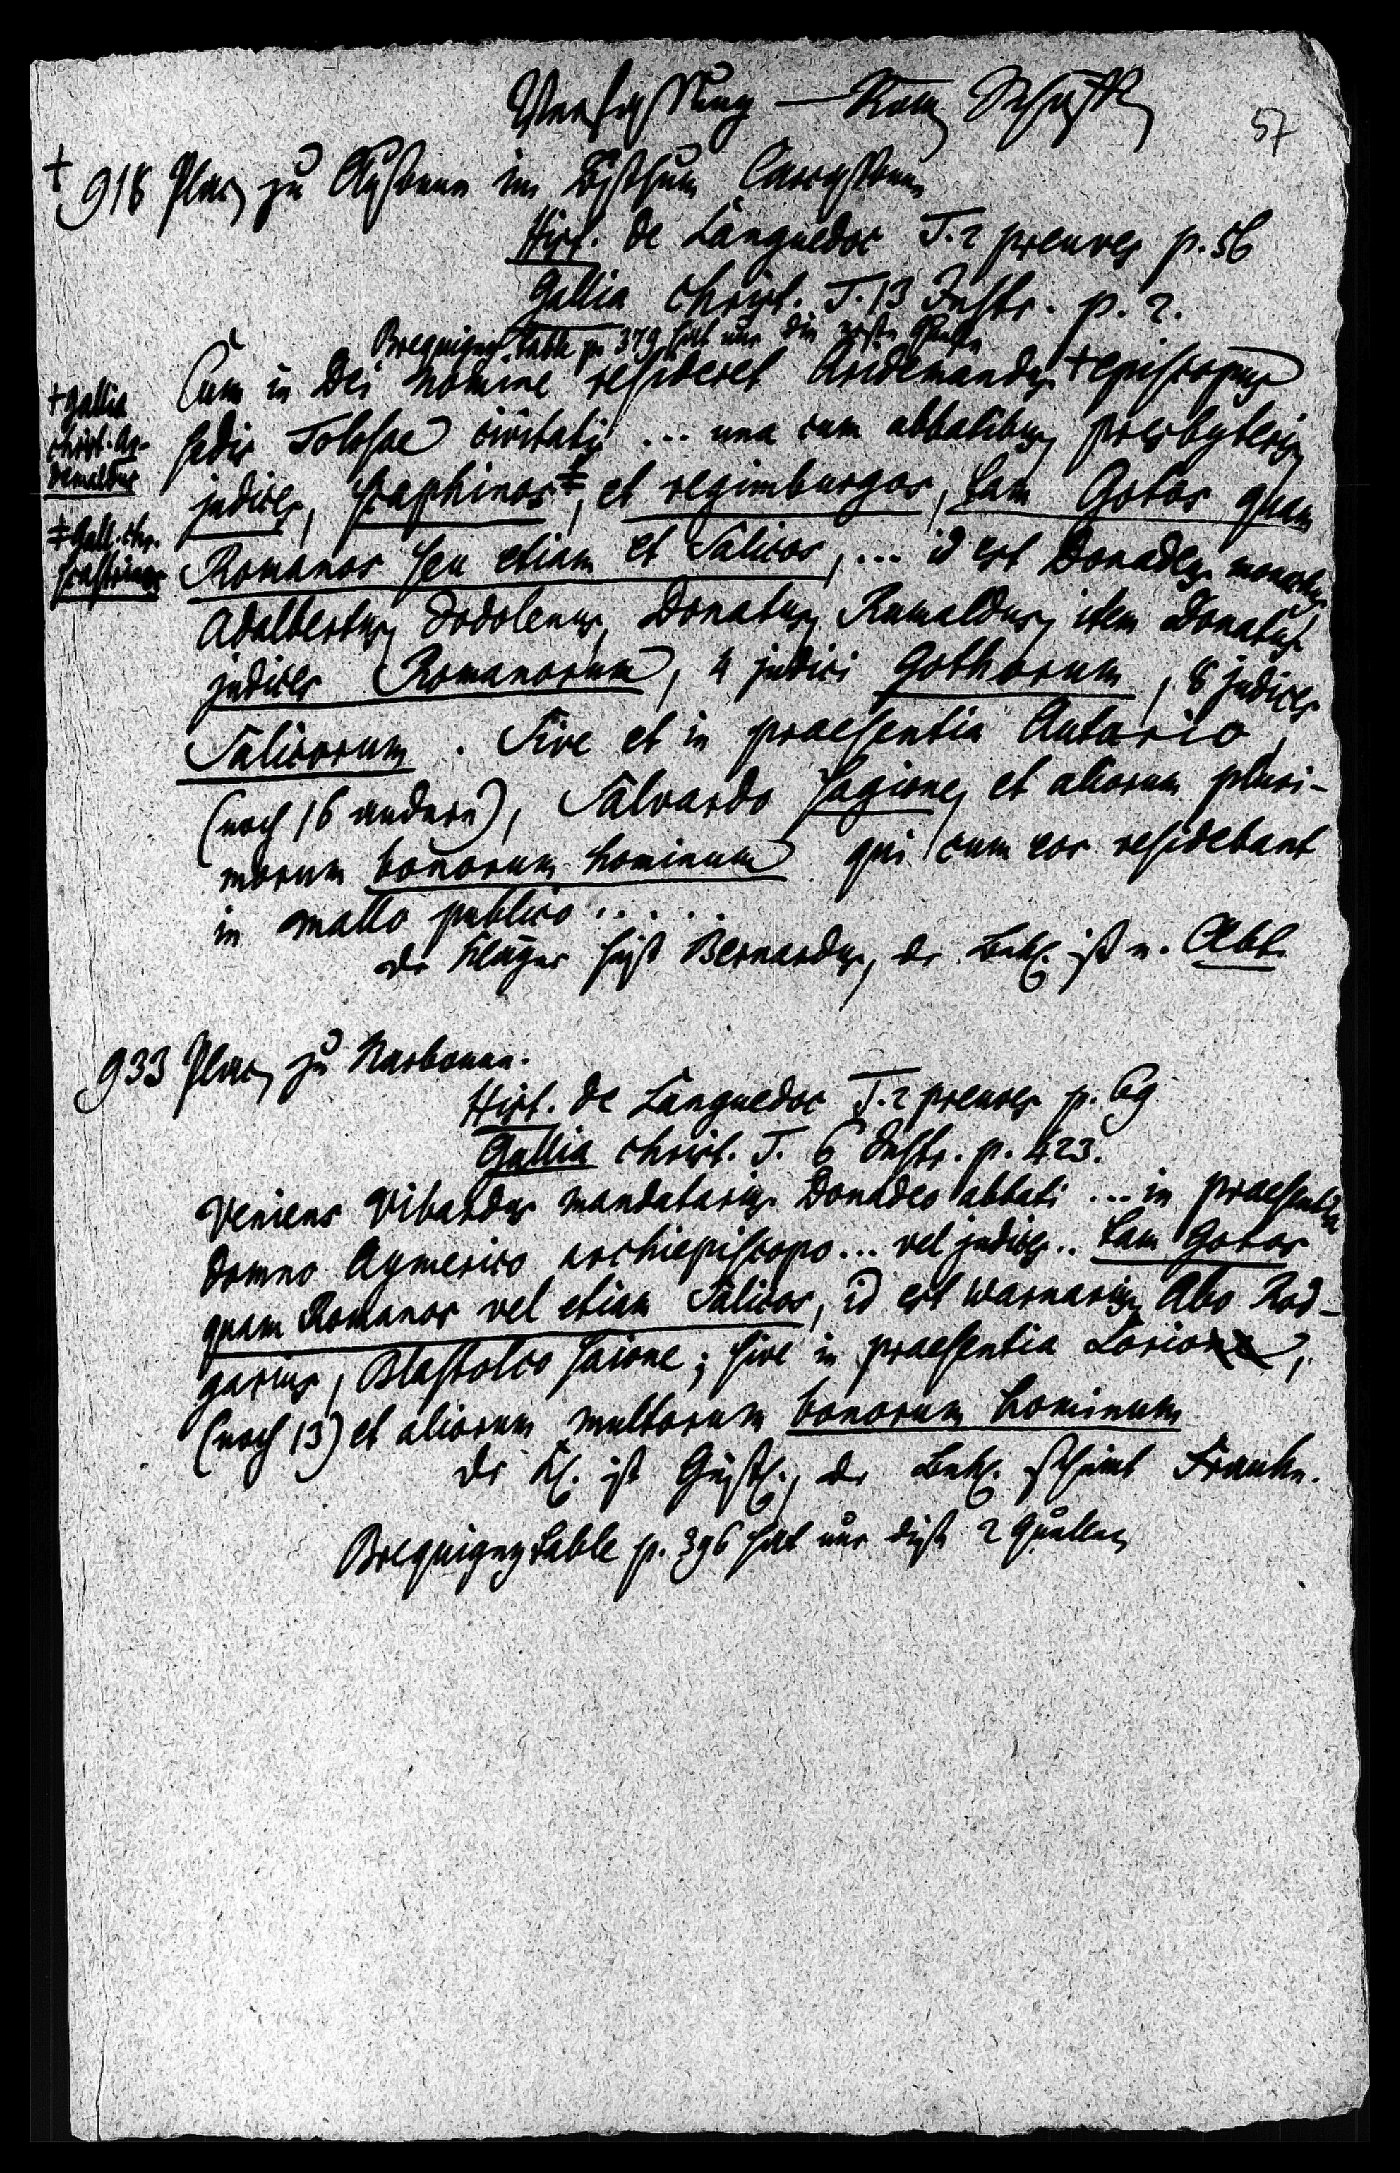 Verfassung — Kom Schöff
57
† 918 Plac zu Alsonne im Bisthum Carcassonne
Hist. de Languedoc T. 2 preuves p. 56
Gallia christ. T. 13 Instr. p. 2.
Brequigny table p. 379 hat nur die erste Quelle
Cum in Dei nomine resideret Aridemandus † episcopus
sedis Tolosae civitatis ... una cum abbatibus presbyteris
judices, scaphinos ‡, et regimburgos, tam Gotos quam
Romanos seu etiam et Salicos, ... id est Donadeus monachus
Adalbertus, Dodolenus, Donatus, Rumaldus, item Donatus
judices Romanorum, 4 judici Gothorum, 8 judices
Salicorum. Sive et in praesentia Autario,
(noch 16 andere), Salvardo sagione, et aliorum pluri-
morum bonorum hominum qui cum eos residebant
in mallo publico .....
der Kläger heißt Bernardus, der Bekl. ist e. Abt.
† Gallia
christ. Ar-
demaldus
‡ Gall. chr.
scastinos
933 Plac zu Narbonne.
Hist. de Languedoc T. 2 preuves p. 69
Gallia christ. T. 6 Instr. p. 423.
Veniens Vibardus mandatarius Donadeo abbati ... in praesentia
domno Aymerico archiepiscopo ... vel judices .. tam Gotos
quam Romanos vel etiam Salicos, id est Warnarius, Abo Rod-
garius, Blastolco saione; sive in praesentia Lorio,
(noch 13) et aliorum multorum bonorum hominum
der Kl. ist Geistl., der Bekl. scheint Franke.
Brequigny table p. 396 hat nur diese 2 Quellen